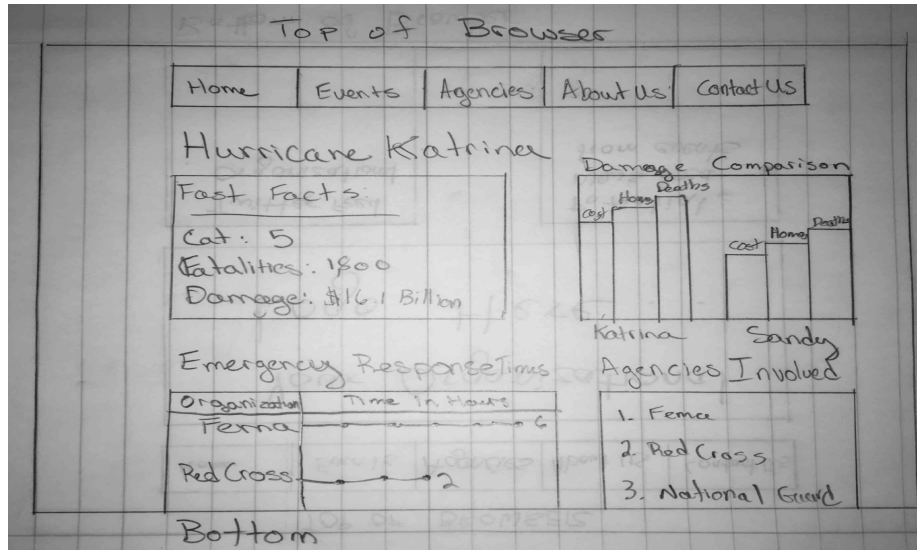 Top of Browser
Home Events Agencies About Us Contact Us
Hurricane Katrina
Fast Facts:
Cat: 5
Fatalities: 1800
Damage: $161 Billion
Damage Comparison
Cost Homes Deaths
Cost Homes Deaths
Katrina Sandy
Emergency Response Times
Organization Time in Hours
Fema 6
Red Cross 2
Agencies Involved
1. Fema
2. Red Cross
3. National Guard
Bottom